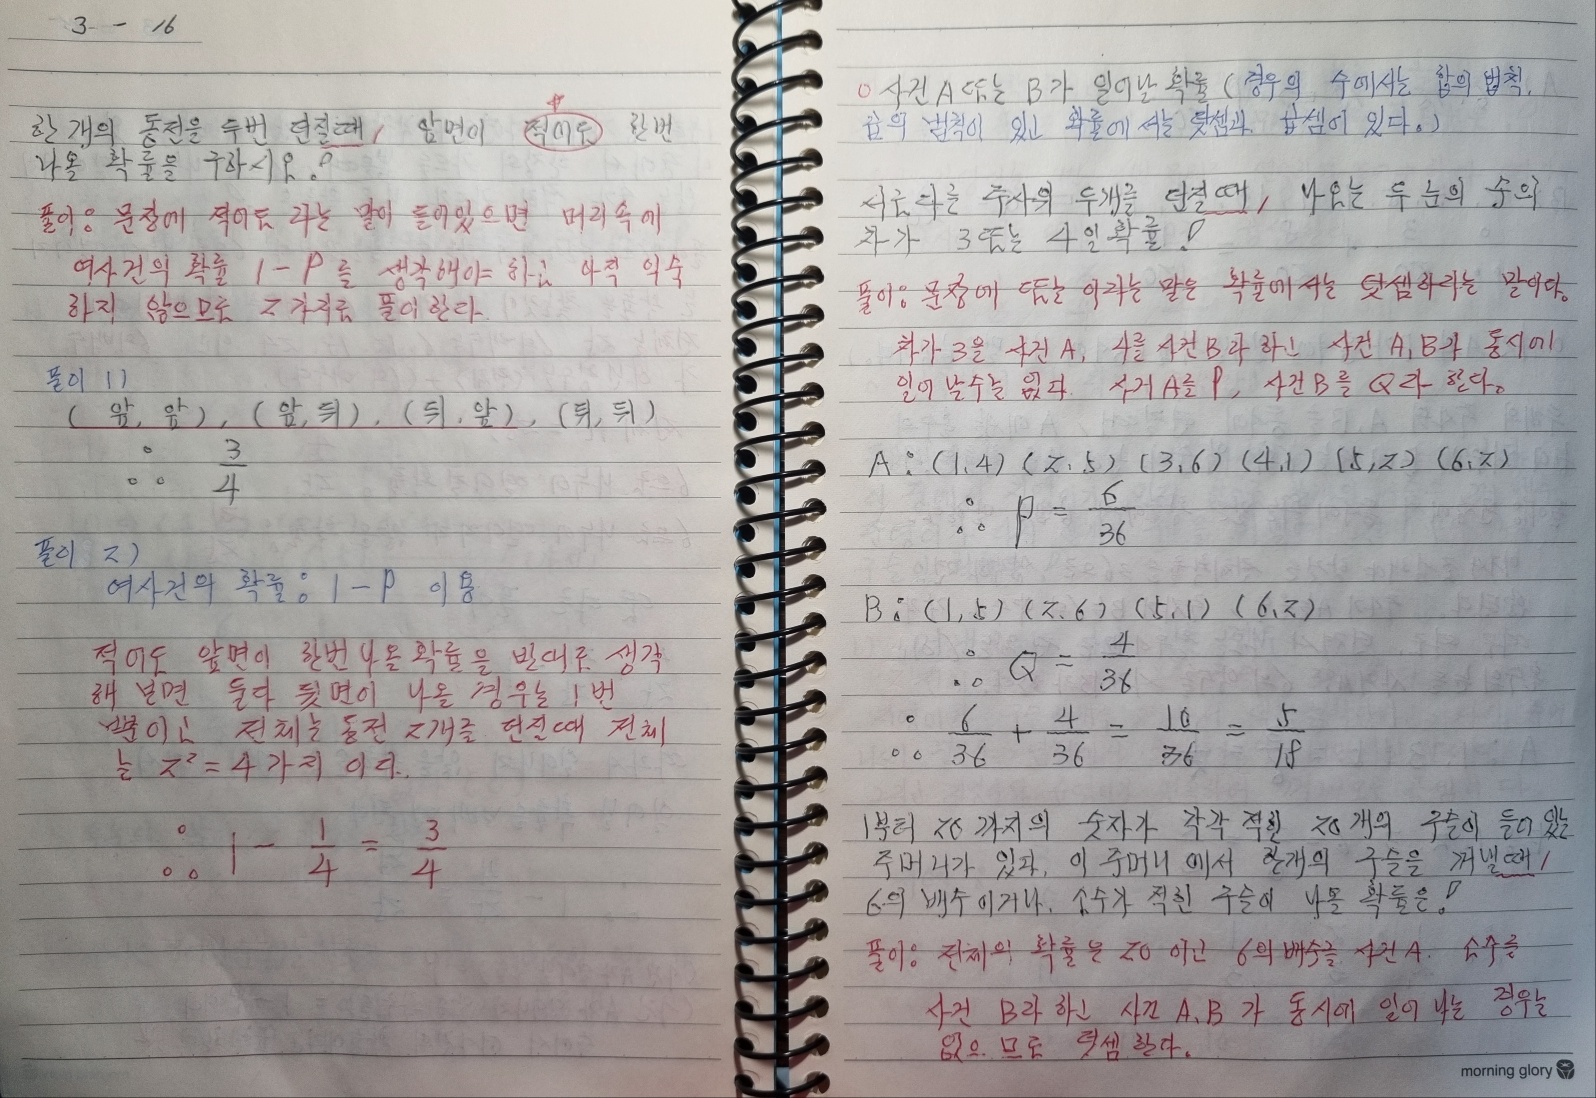 3 - 16
한개의 동전을 두번 던질때, 앞면이 적어도 한번
나올 확률을 구하시오?
풀이: 문장에 적어도 라는 말이 들어있으면 머리속에
여사건의 확률 1-P 를 생각해야 하고 아직 익숙
하지 않으므로 2가지로 풀이한다.
풀이 1)
(앞, 앞), (앞, 뒤), (뒤, 앞), (뒤, 뒤)
∴ 3/4
풀이 2)
여사건의 확률: 1-P 이용
적어도 앞면이 한번 나올 확률을 반대로 생각
해 보면 둘다 뒷면이 나올 경우는 1번
뿐이고 전체는 동전 2개를 던질때 전체
는 2² = 4가지 이다.
∴ 1 - 1/4 = 3/4
○ 사건 A 또는 B가 일어날 확률 (경우의 수에서는 합의 법칙,
곱의 법칙이 있고 확률에서는 덧셈과 곱셈이 있다.)
서로다른 주사위 두개를 던질때, 나오는 두 눈의 수의
차가 3또는 4일확률?
풀이: 문장에 또는 이라는 말은 확률에서는 덧셈하라는 말이다.
차가 3을 사건 A, 4를 사건 B라 하고 사건 A,B가 동시에
일어 날수는 없다. 사거 A를 P, 사건 B를 Q라 한다.
A: (1,4) (2,5) (3,6) (4,1) (5,2) (6,2)
∴ P = 6/36
B: (1,5) (2,6) (5,1) (6,2)
∴ Q = 4/36
∴ 6/36 + 4/36 = 10/36 = 5/18
1부터 20까지의 숫자가 각각 적힌 20개의 구슬이 들어 있는
주머니가 있다. 이 주머니 에서 한개의 구슬을 꺼낼때,
6의 배수이거나, 소수가 적힌 구슬이 나올 확률은?
풀이: 전체의 확률은 20 이고 6의배수를 사건 A. 소수를
사건 B라 하고 사건 A,B 가 동시에 일어 나는 경우는
없으므로 덧셈 한다.
morning glory